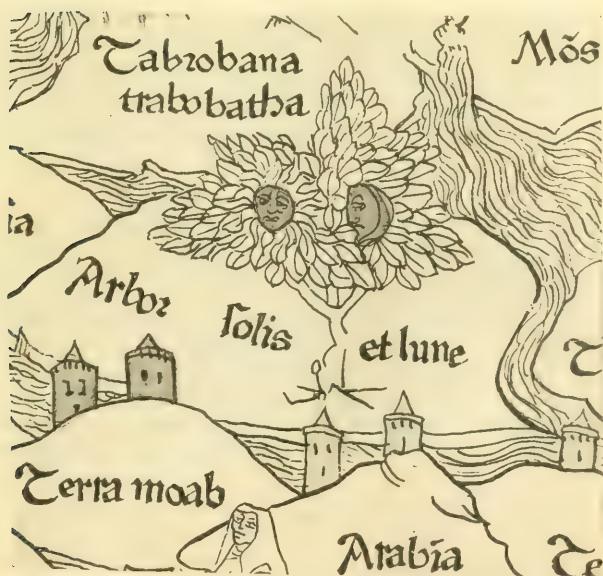 Tabrobana
trabobatha
Mõs
ia
Arbor
solis
et lune
T
Terra moab
Arabia
Te